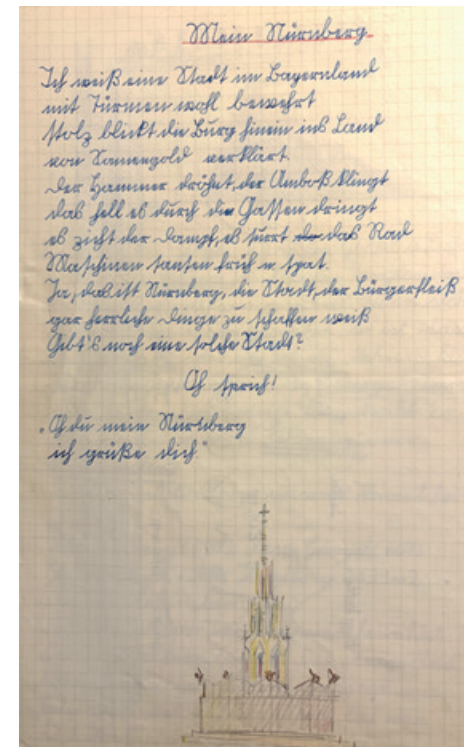 Mein Nürnberg
Ich weiß eine Stadt im Bayernland
mit Türmen wohl bewehrt
stolz blickt die Burg hinein ins Land
von Sonnengold verklärt.
Der Hammer dröhnt, der Amboß klingt
das hell es durch die Gassen dringt
es zischt der Dampf, es surrt das Rad
Maschinen sausen früh u. spat.
Ja, das ist Nürnberg, die Stadt, der Bürgerfleiß
gar herrliche Dinge zu schaffen weiß
Gibt's noch eine solche Stadt?
Oh sprich!
"Oh du mein Nürnberg
ich grüße dich"